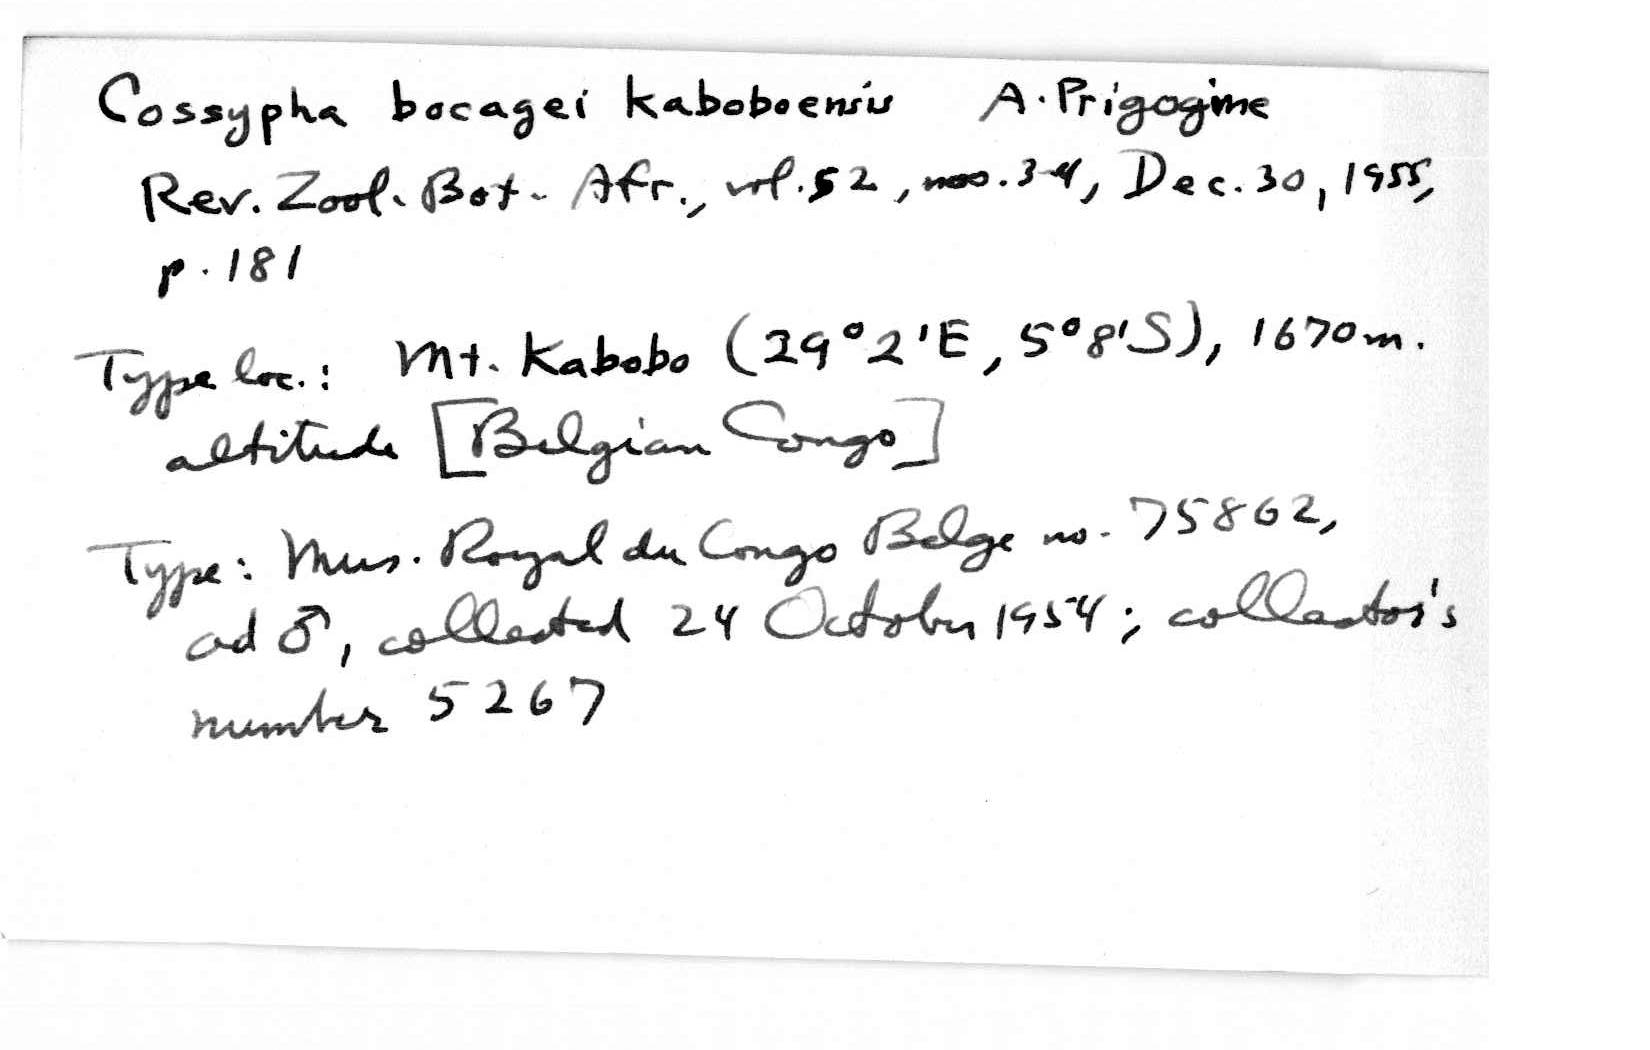 Cossypha bocagei kaboboensis A. Prigogine
Rev. Zool. Bot. Afr., vol. 52, nos. 3-4, Dec. 30, 1955,
p. 181
Type loc.: Mt. Kabobo (29°2'E, 5°8'S), 1670 m.
altitude [Belgian Congo]
Type: Mus. Royal du Congo Belge no. 75862,
ad ♂, collected 24 October 1954; collector's
number 5267